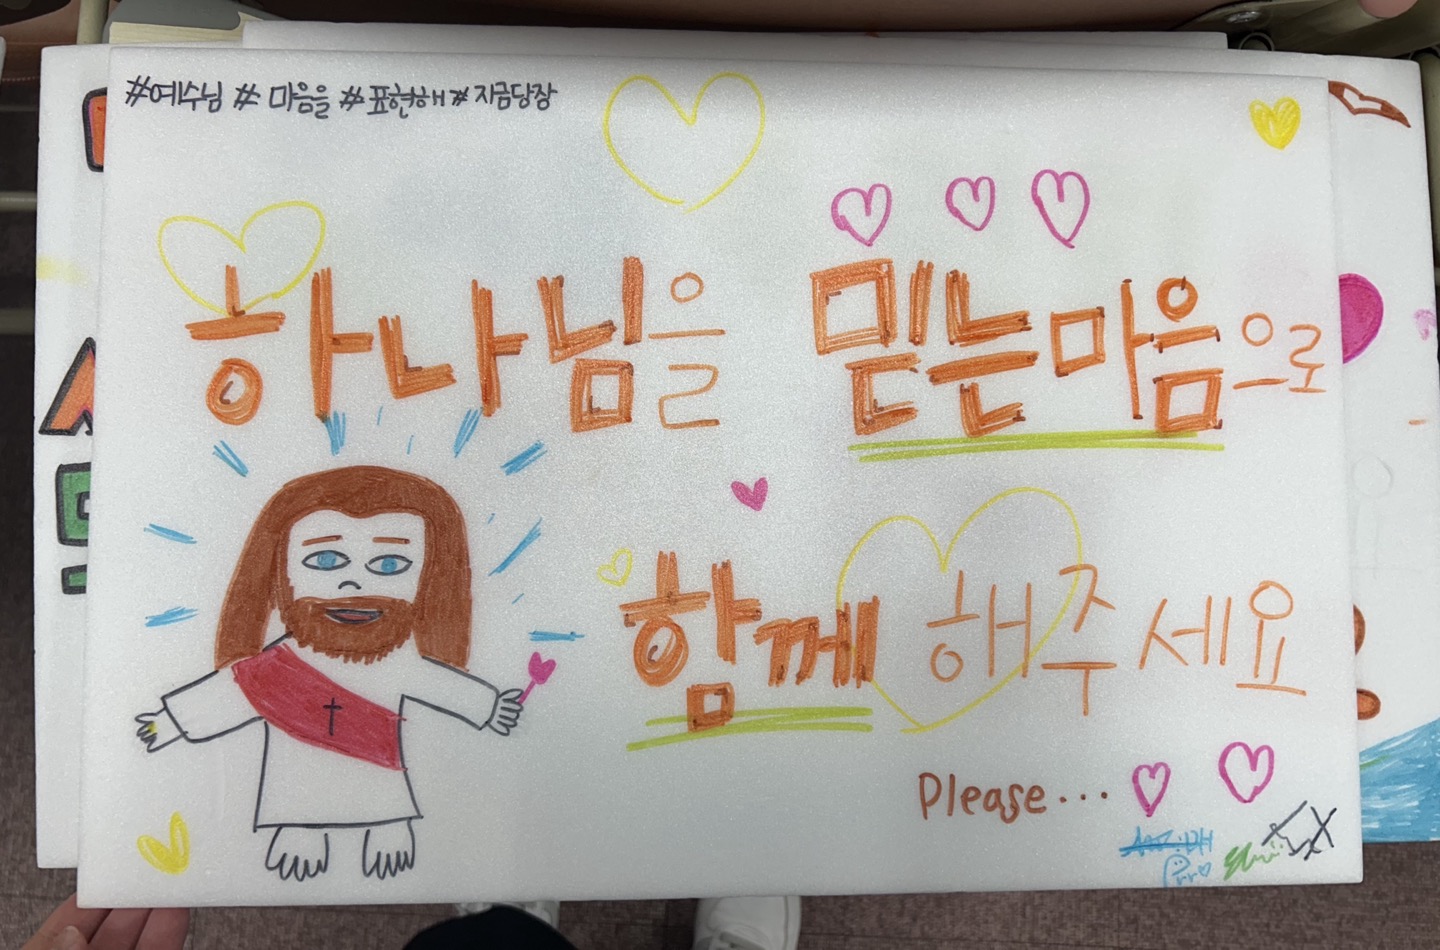 #예수님 # 마음을 #표현해 #지금당장
하나님을 믿는마음으로
함께 해주세요
Please...